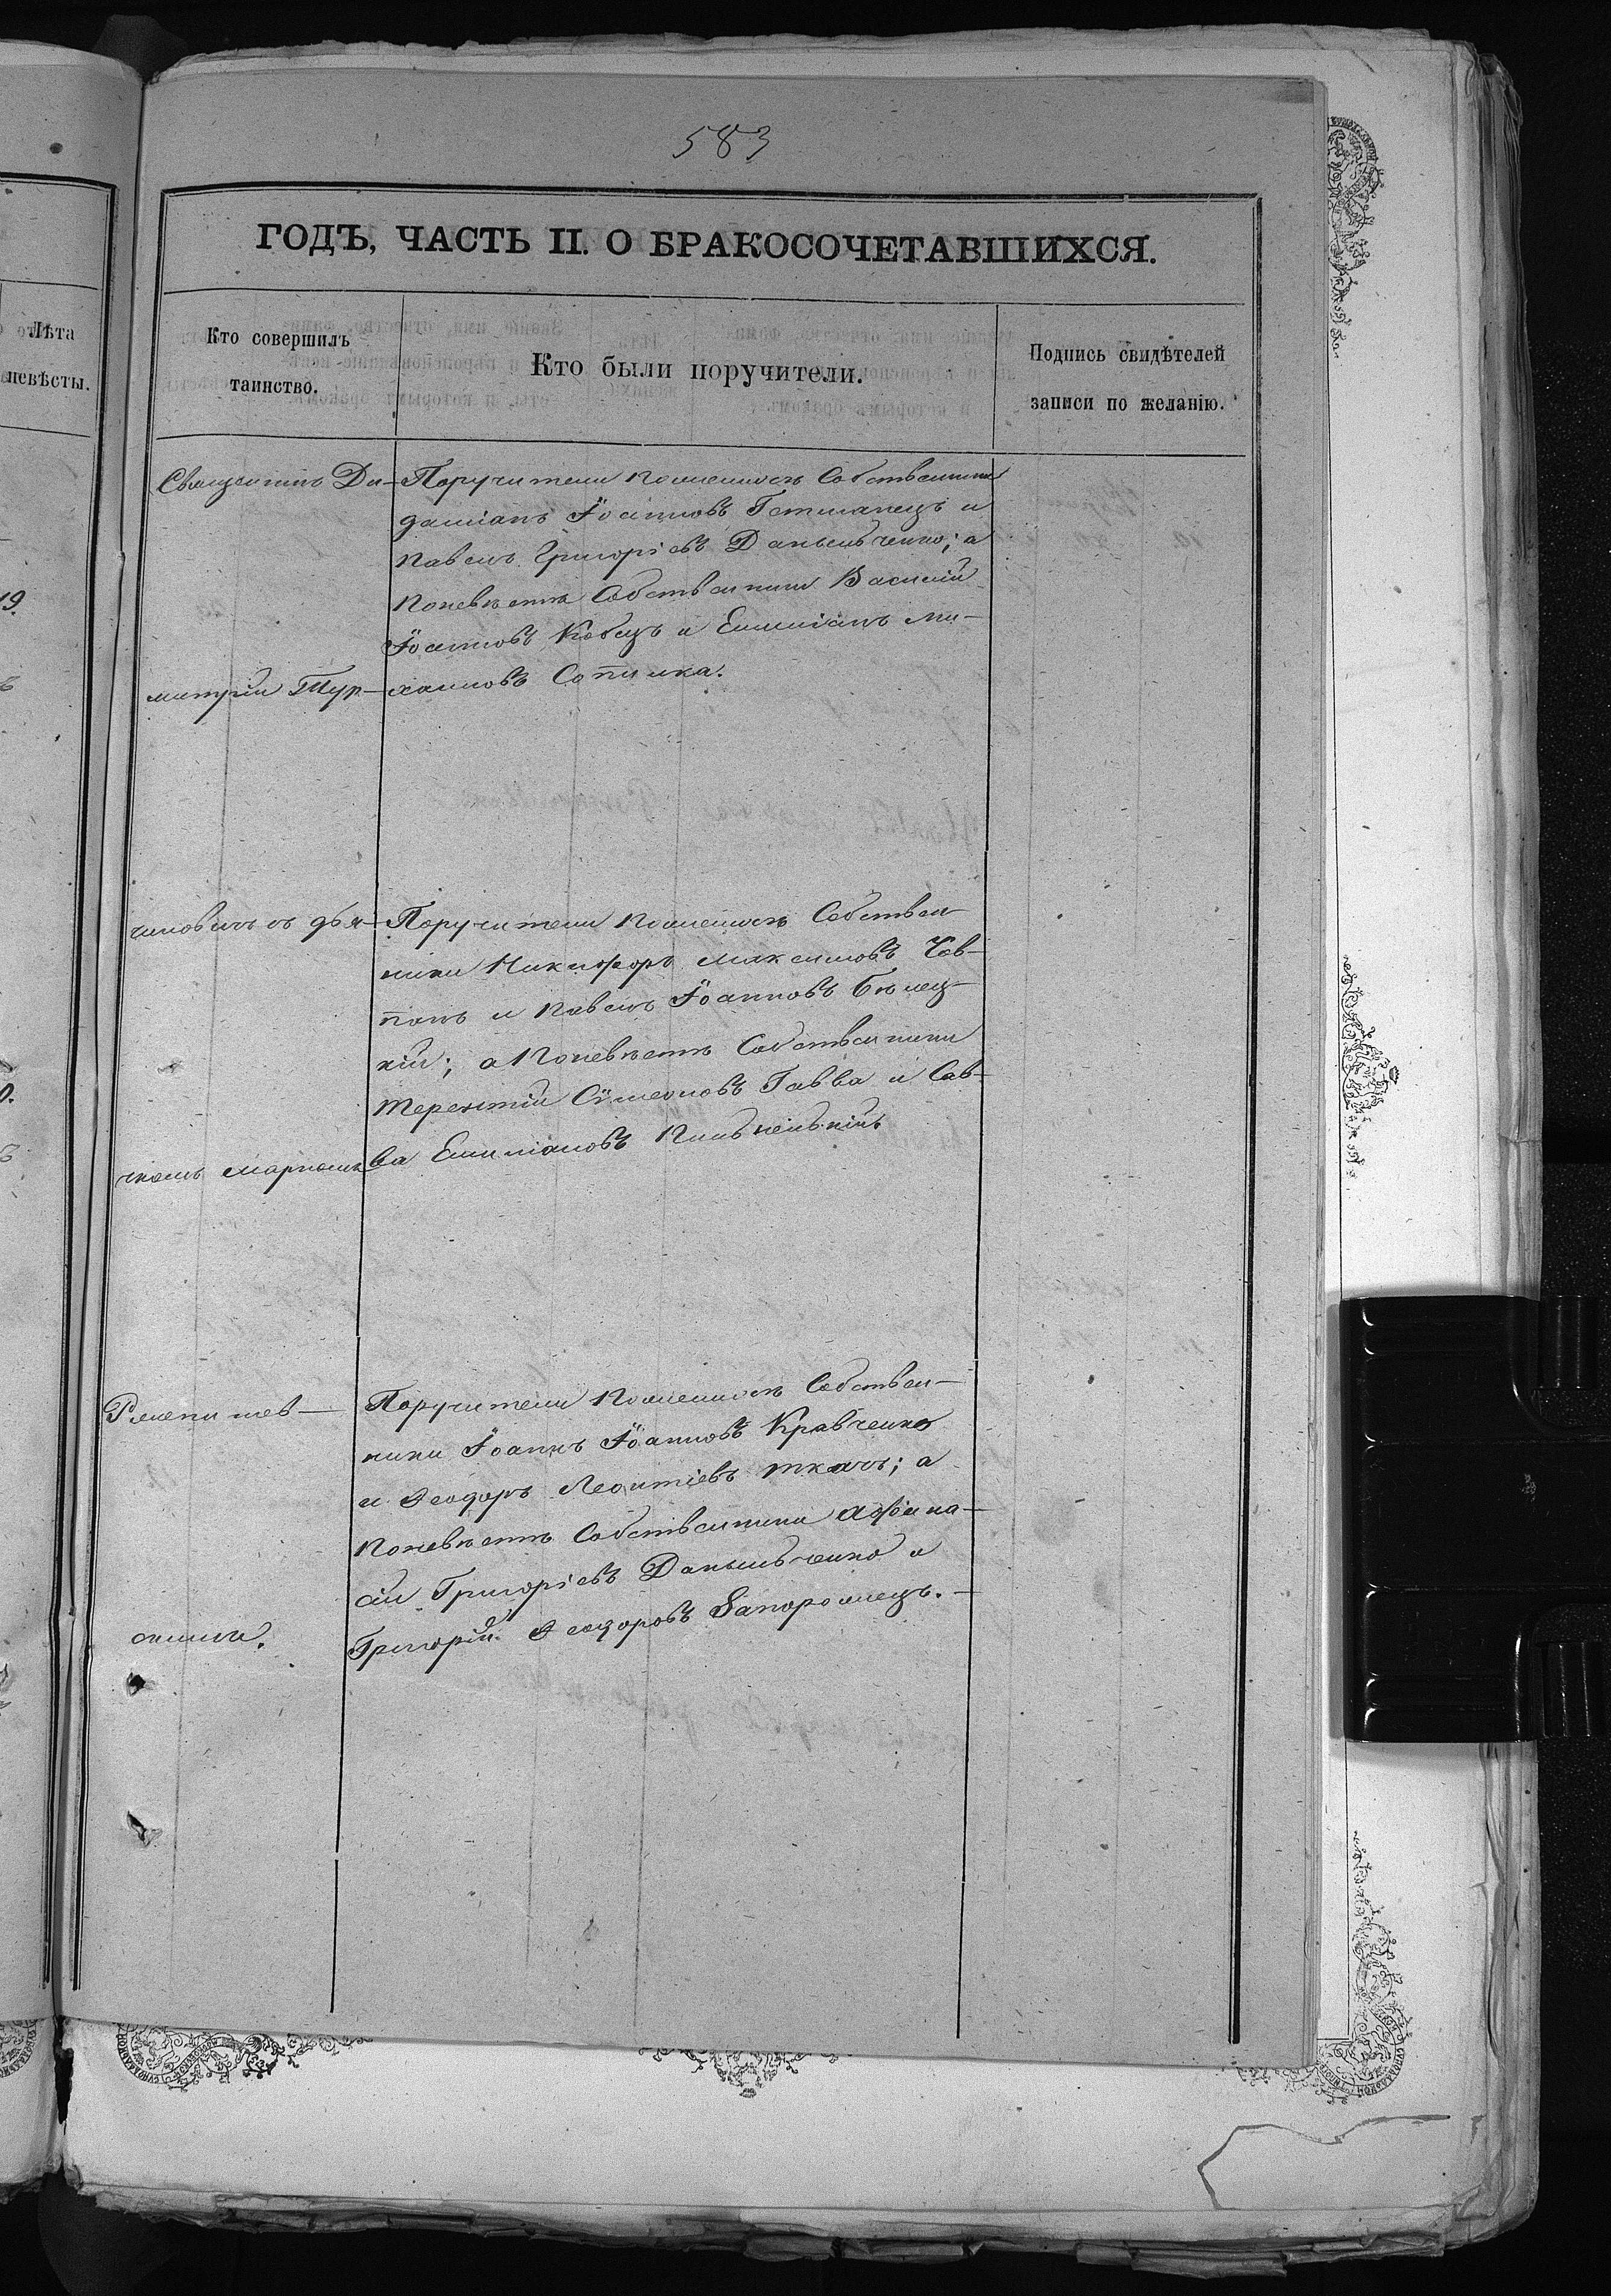 583
ГОДЪ, ЧАСТЬ II. О БРАКОСОЧЕТАВШИХСЯ.
Лѣта
невѣсты.
Кто совершилъ
таинство.
Кто были поручители.
Подпись свидѣтелей
записи по желанію.
Священникъ Ди-
митрій Тур-
чиновичъ съ дья-
чкомъ Маркомъ
Поручители по женихѣ Собственники
Даміанъ Іоанновъ Гетманецъ и
Павелъ Григоріевъ Данильченко; а
по невѣстѣ Собственники Василій
Іоанновъ Кобецъ и Емиліанъ Ми-
хаиловъ Сопилка.
Поручители по женихѣ Собствен-
ники Никифоръ Максимовъ Чов-
панъ и Павелъ Іоанновъ Бѣлец-
кій; а по невѣстѣ Собственники
Терентій Сѷмеоновъ Гавва и Сав-
ва Емиліановъ
Поручители по женихѣ Собствен-
ники Іоаннъ Іоанновъ Кравченко
и Ѳеодоръ Леонтіевъ Ткачъ; а
по невѣстѣ Собственники Аѳана-
сій Григоріевъ Данильченко и
Григорій Ѳеодоровъ Запорожецъ.
19.
0.